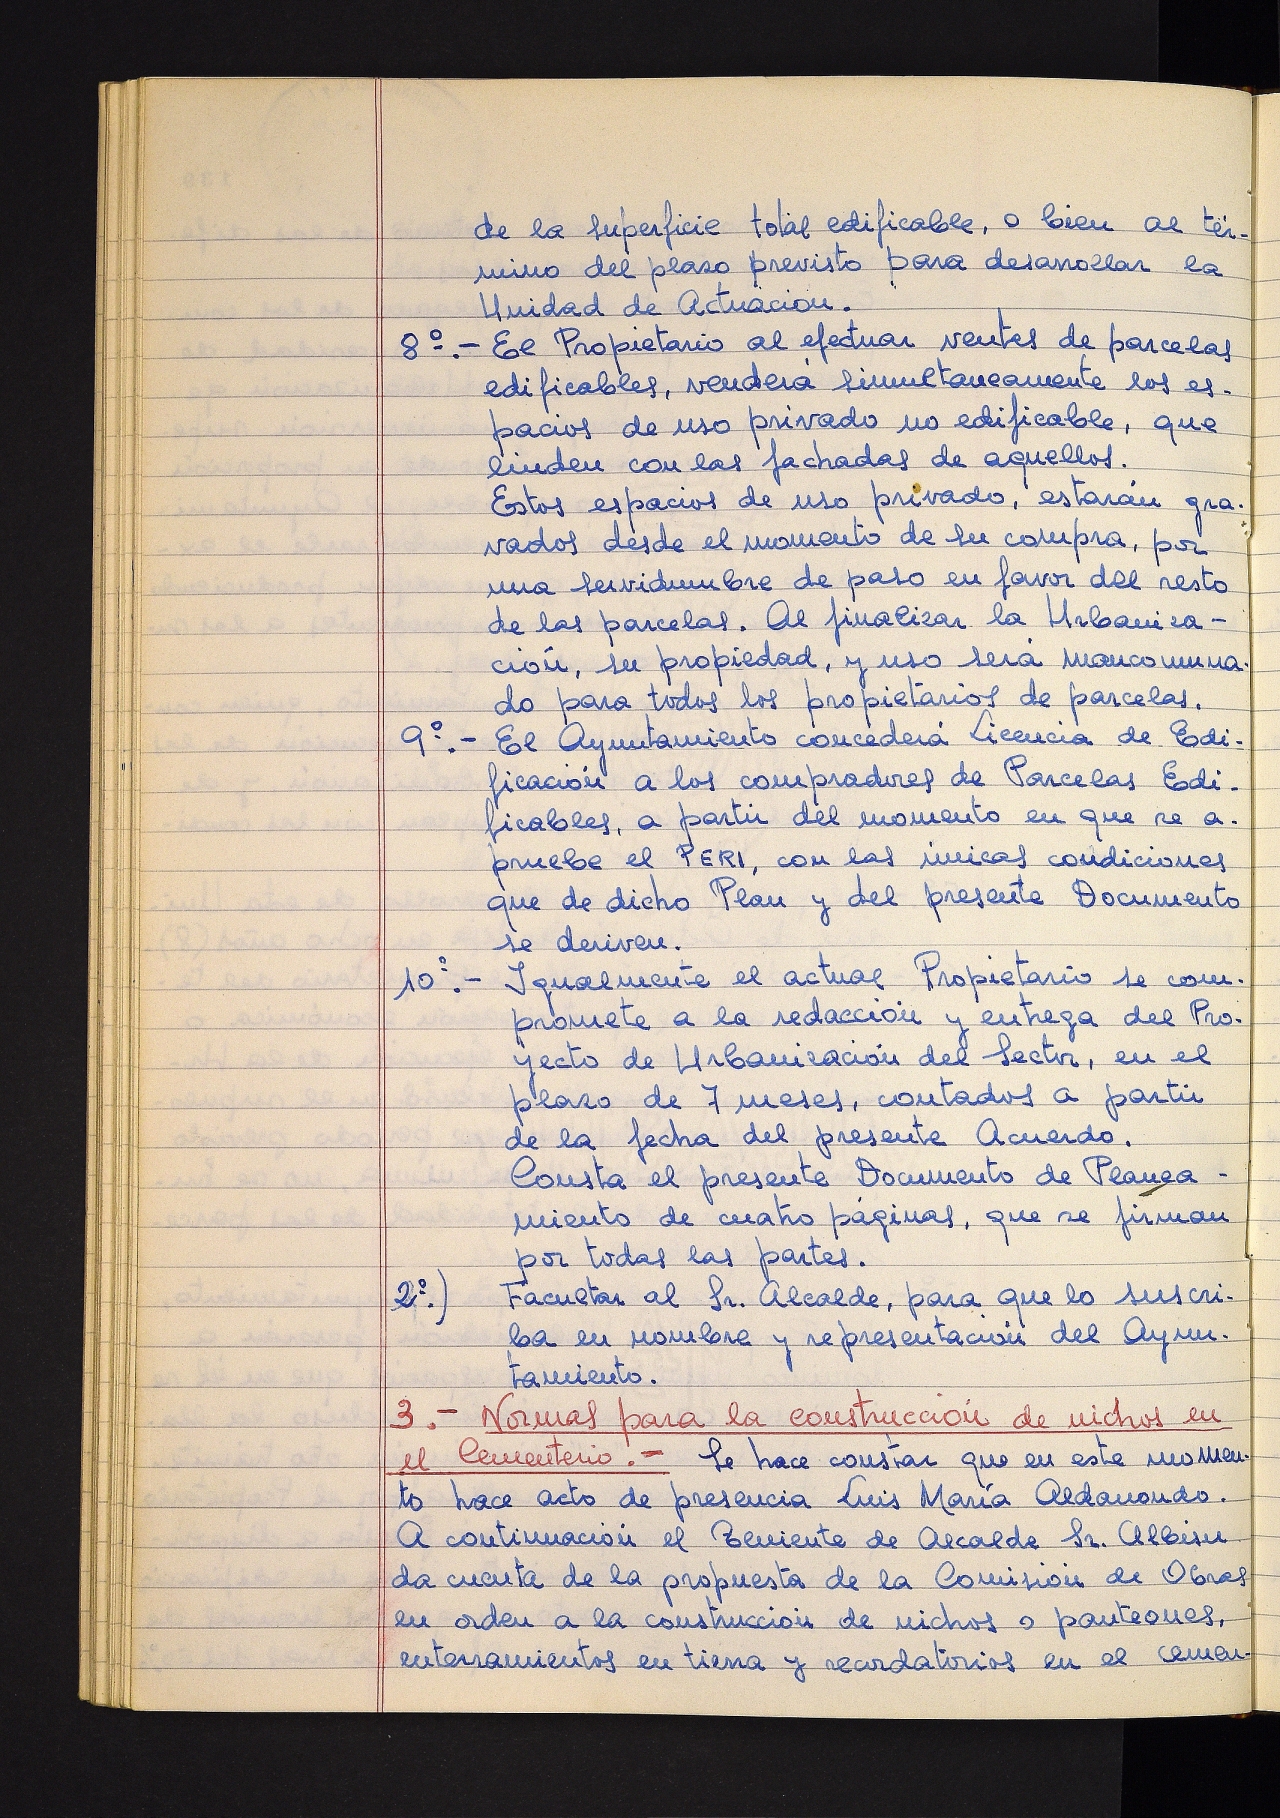 de la superficie total edificable, o bien al tér-
mino del plazo previsto para desarrollar la
Unidad de Actuación.
8º.- El Propietario al efectuar ventes de parcelas
edificables, venderá simultaneamente los es-
pacios de uso privado no edificable, que
linden con las fachadas de aquellos.
Estos espacios de uso privado, estarán gra-
vados desde el momento de su compra, por
una servidumbre de paso en favor del resto
de las parcelas. Al finalizar la Urbaniza-
ción, su propiedad, y uso será mancomuna-
do para todos los propietarios de parcelas.
9º.- El Ayuntamiento concederá Licencia de Edi-
ficación a los compradores de Parcelas Edi-
ficables, a partir del momento en que se a-
pruebe el PERI, con las únicas condiciones
que de dicho Plan y del presente Documento
se deriven.
10º.- Igualmente el actual Propietario se com-
promete a la redacción y entrega del Pro-
yecto de Urbanización del Sector, en el
plazo de 7 meses, contados a partir
de la fecha del presente Acuerdo.
Consta el presente Documento de Planea-
miento de cuatro páginas, que se firman
por todas las partes.
2º.) Facultar al Sr. Alcalde, para que lo suscri-
ba en nombre y representación del Ayun-
tamiento.
3.- Normas para la construcción de nichos en
el Cementerio.- Se hace constar que en este momen-
to hace acto de presencia Luis María Aldanondo.
A continuación el Teniente de Alcalde Sr. Albisu
da cuenta de la propuesta de la Comisión de Obras
en orden a la construcción de nichos o panteones,
enterramientos en tierra y recordatorios en el cemen-